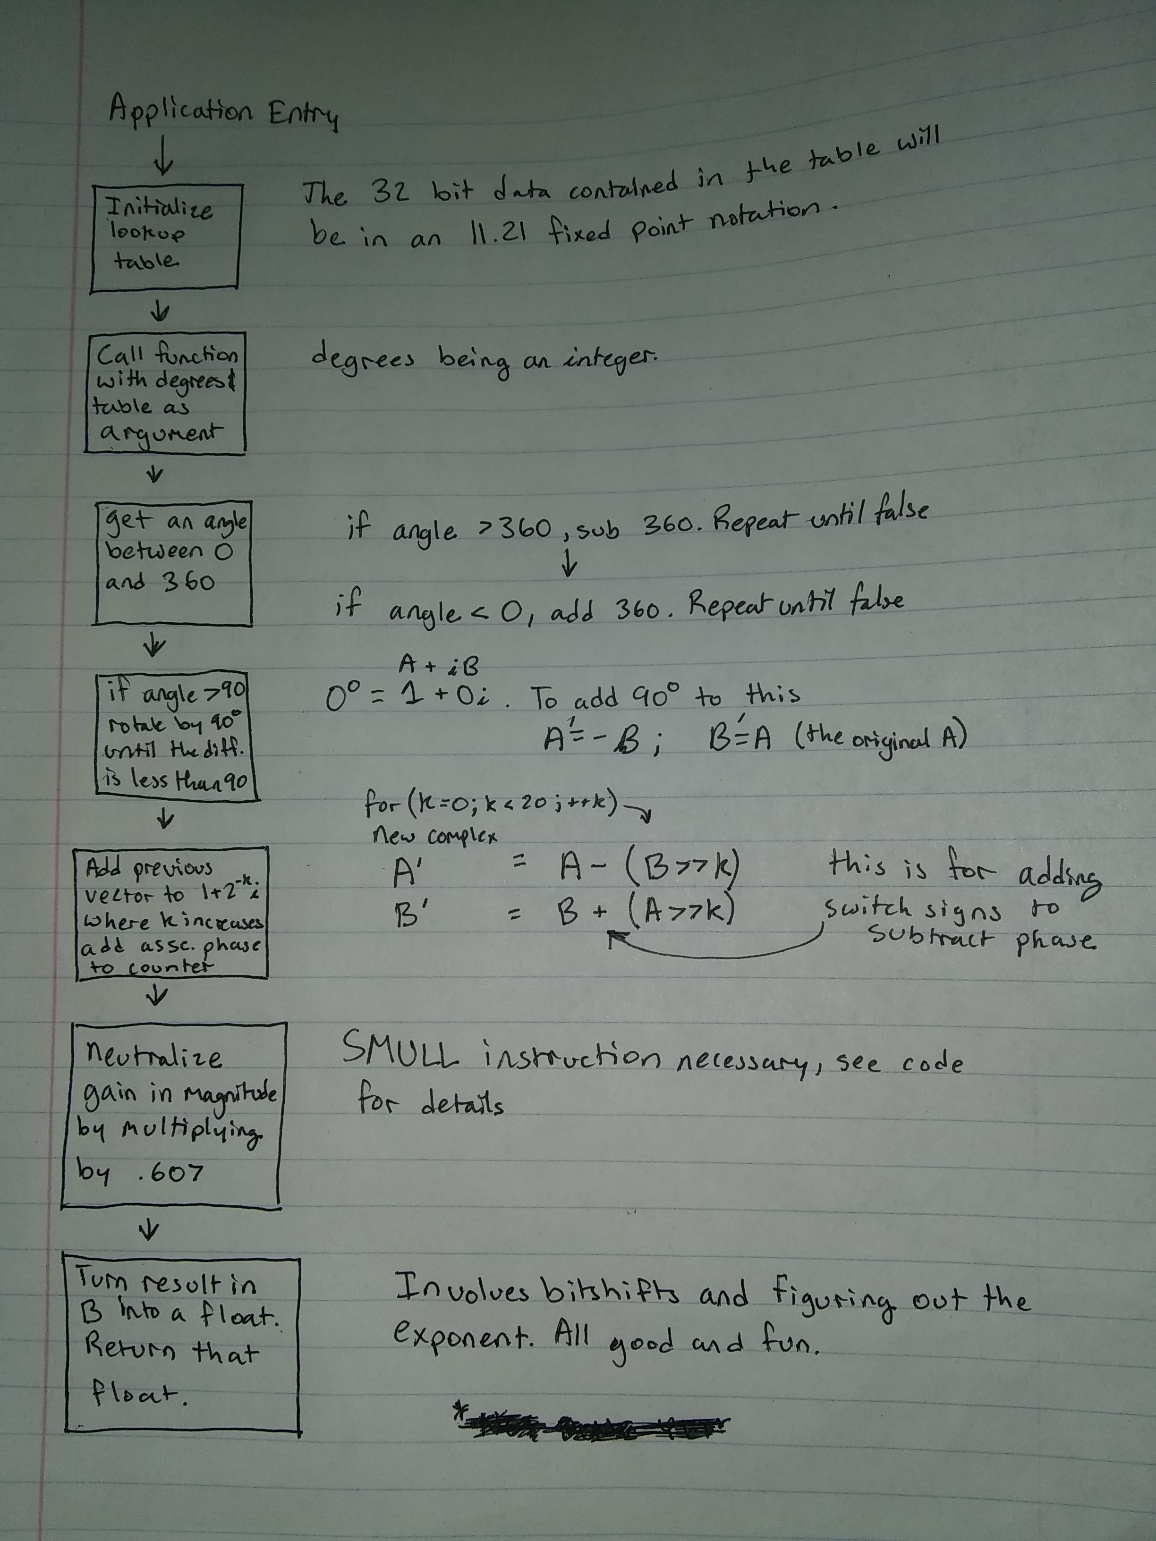 Application Entry
↓
Initialize
lookup
table
The 32 bit data contained in the table will
be in an 11.21 fixed point notation.
↓
Call function
with degrees &
table as
argument
degrees being an integer.
↓
get an angle
between 0
and 360
if angle >360, sub 360. Repeat until false
↓
if angle < 0, add 360. Repeat until false
↓
if angle >90
rotate by 90°
until the diff.
is less than 90
A + iB
0° = 1 + 0i. To add 90° to this
A' = -B; B' = A (the original A)
↓
Add previous
vector to 1+2^-k i
where k increases
add assc. phase
to counter
for (k=0; k<20; ++k)
new complex
A' = A - (B>>k)
B' = B + (A>>k)
this is for adding
switch signs to
subtract phase
↓
Neutralize
gain in magnitude
by multiplying
by .607
SMULL instruction necessary, see code
for details
↓
Turn result in
B into a float.
Return that
float.
Involves bitshifts and figuring out the
exponent. All good and fun.
*